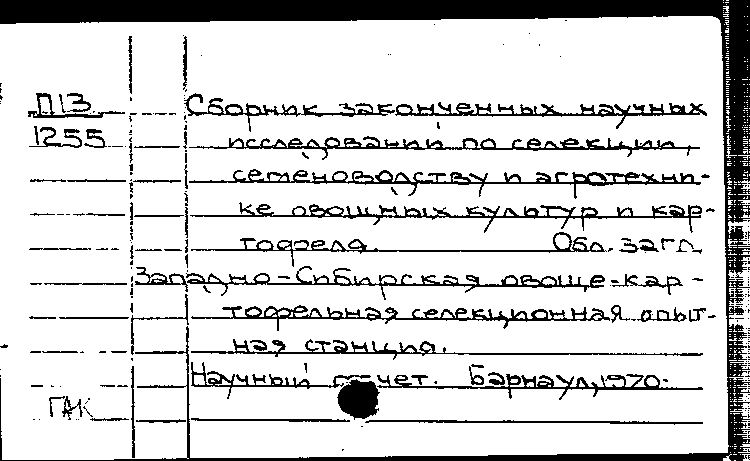 П13
1255
Сборник законченных научных
исследований по селекции,
семеноводству и агротехни-
ке овощных культур и кар-
тофеля. Обл. загл.
Западно-Сибирская овоще-кар-
тофельная селекционная опыт-
ная станция.
Научный отчет. Барнаул, 1970.
ГАК